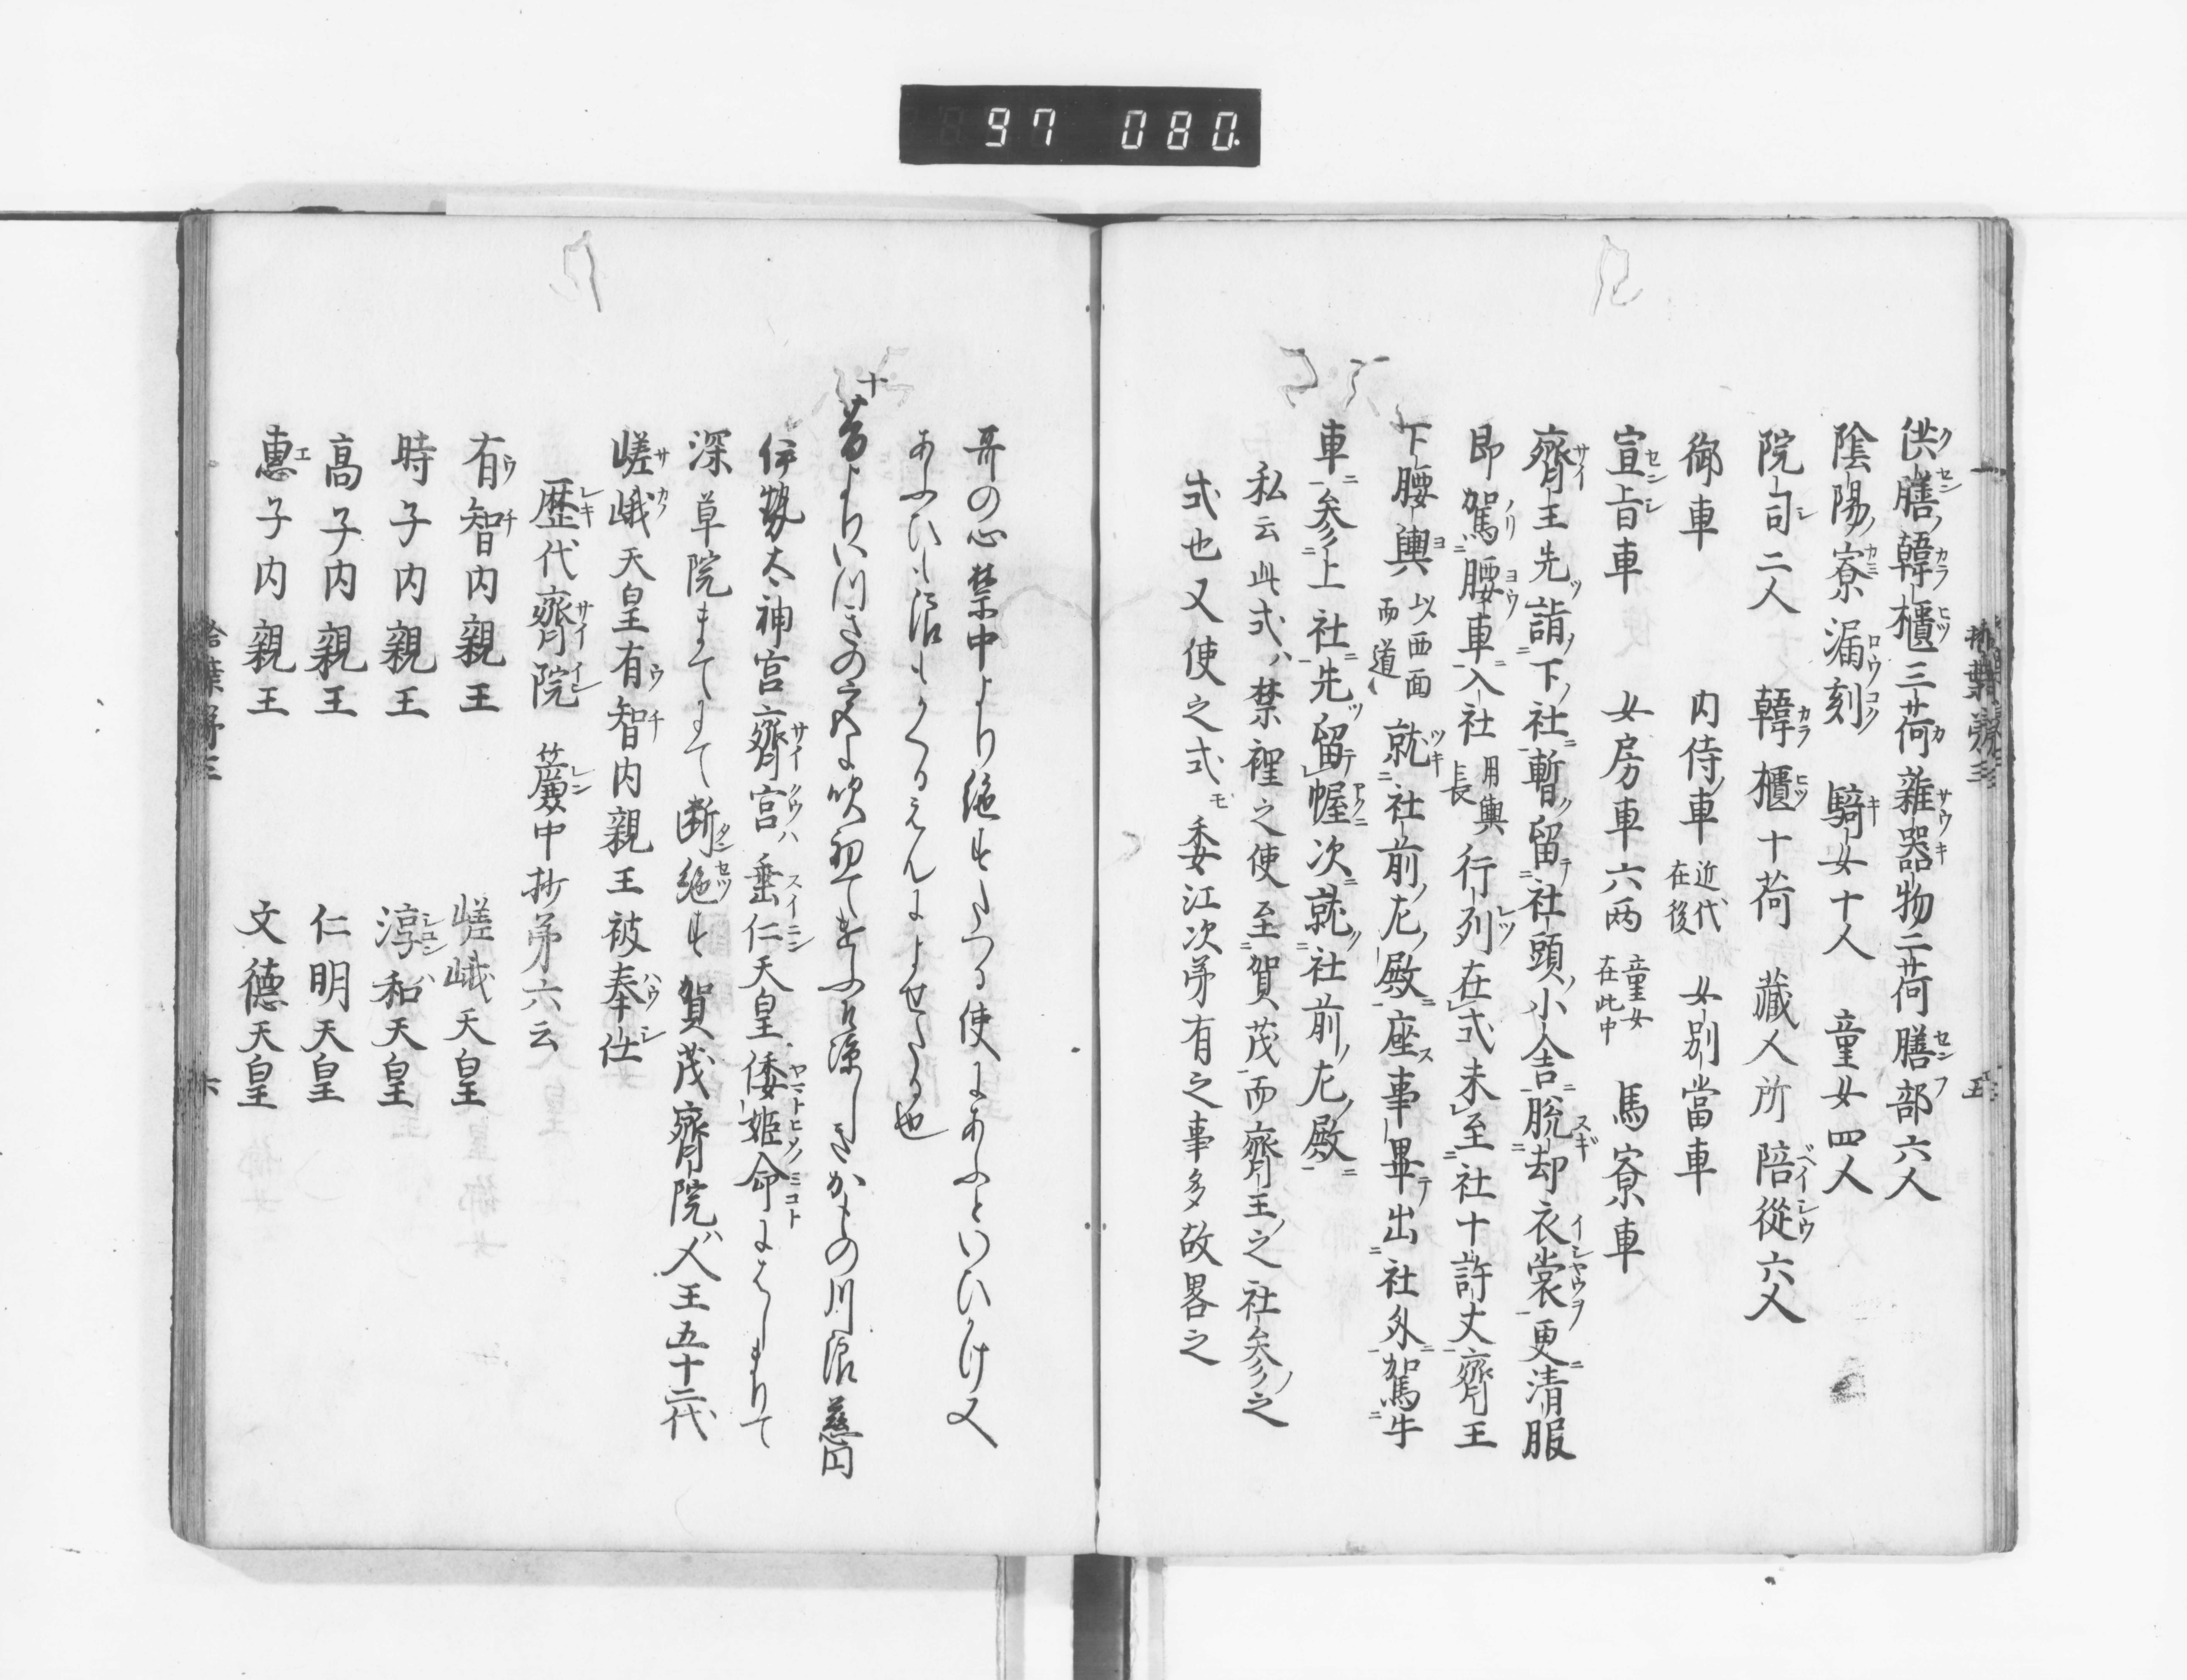 97 080
供膳ノ韓櫃三荷雑器物二荷膳部六人
陰陽ノ寮漏刻 騎女十人 童女四人
院司二人 韓櫃十荷 蔵人所陪従六人
御車 内侍車 近代在後 女別當車
宣旨車 女房車六両 童女在此中 馬寮車
齋王先ツ詣ノ下ノ社ニ暫ク留テ社頭ノ小舎ニ脱却衣裳更ニ清服
即駕腰車ニ入社 用輿長 行列在式未至社十許丈齋王
下腰輿 以西面而道 就社前ノ左ノ殿ニ座事畢テ出社外ニ駕牛
車ニ参上社ニ先ツ留テ幄ニ次ニ就ノ社前ノ左ノ殿ニ
私云此式ハ禁裡之使至賀茂而齋王ノ之社参ノ之
式也又使之式モ委江次第有之事多故畧之
哥の心禁中より絶すたつる使にあふといひかけ又
あふひも浪もかくるえんによせたる也
十 昔よりいつきの宮に吹初てけふは涼しきかもの川浪 慈円
伊勢太神宮齋宮ハ垂仁天皇倭姫命にはしまりて
深草院まてにて断絶す賀茂齋院ハ人王五十二代
嵯峨天皇有智内親王被奉仕
歴代齋院 簾中抄第六云
有智内親王 嵯峨天皇
時子内親王 淳和天皇
高子内親王 仁明天皇
惠子内親王 文徳天皇
拾葉第三 六